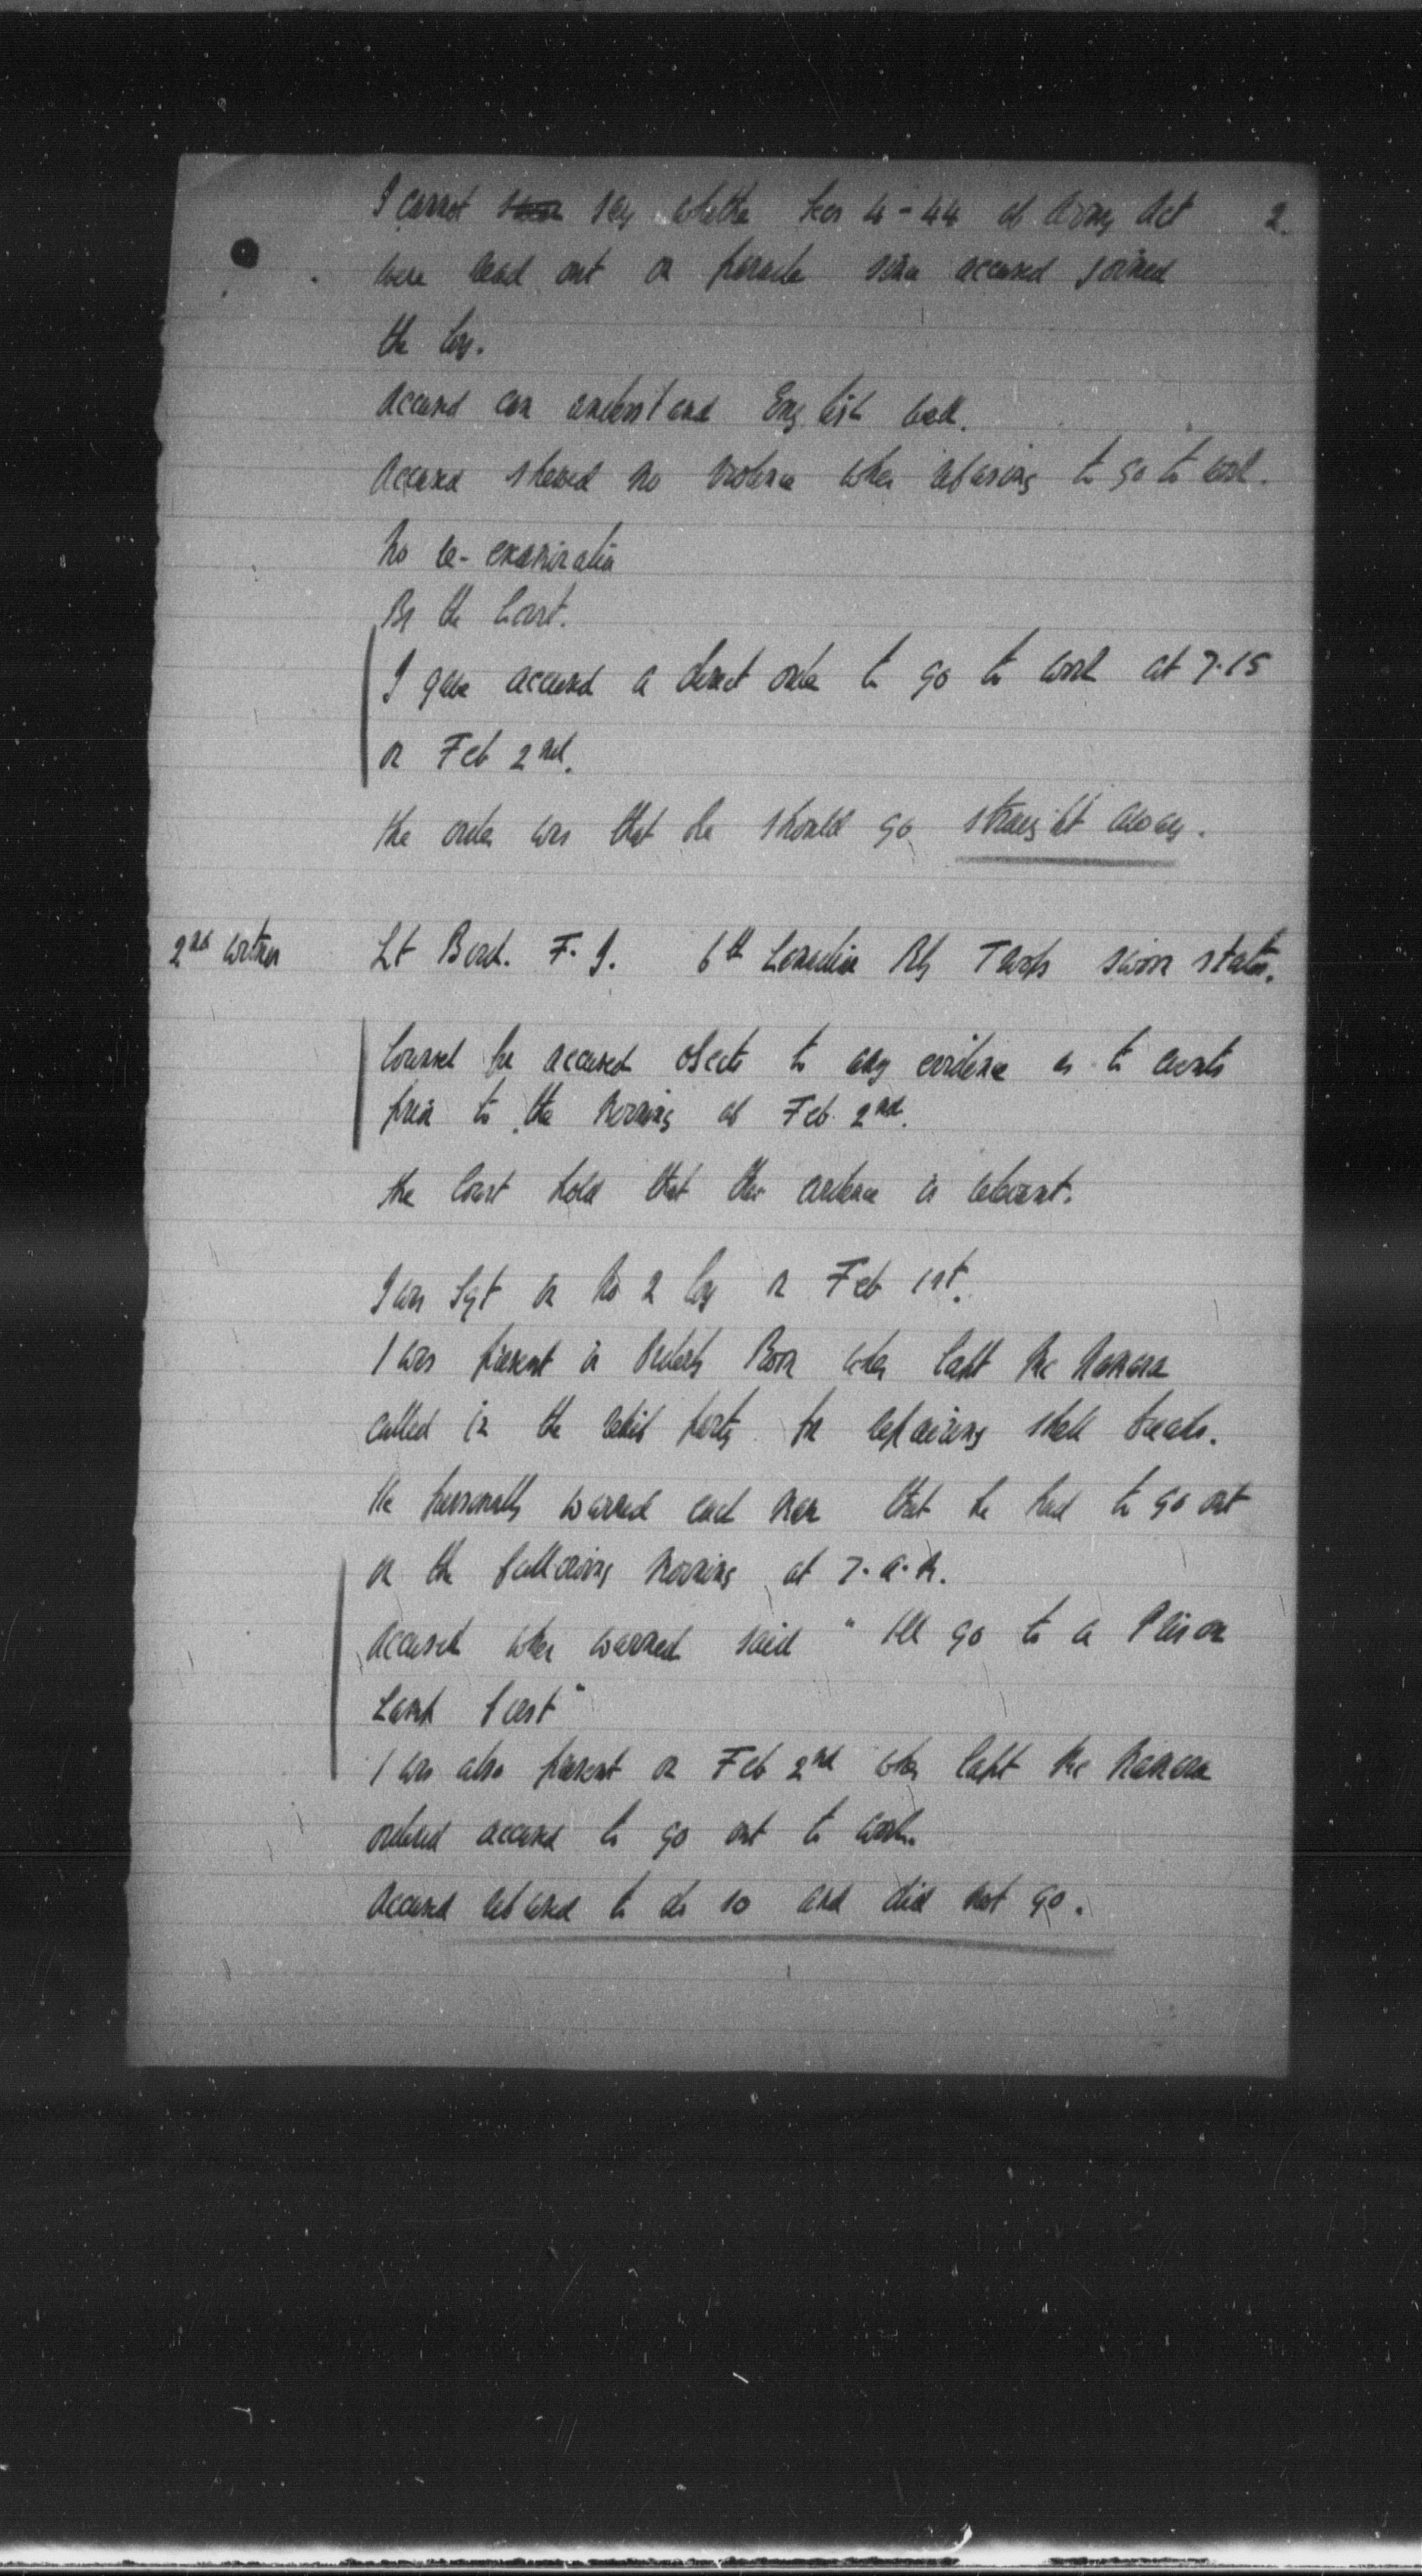 2.
I cannot say whether Secs 4-44 of Army Act
were read out on parade since accused joined
the Coy.
Accused can understand English well.
Accused showed no violence when refusing to go to work.
No re-examination
By the Court.
I gave accused a direct order to go to work at 7.15
on Feb 2nd.
The order was that he should go straight away.
2nd witness
Lt F. J. 6th Canadian Rly Troops sworn states.
Counsel for accused objects to any evidence as to events
prior to the morning of Feb 2nd.
The Court hold that this evidence is relevant.
I was Sgt in No 2 Coy on Feb 1st.
I was present in Orderly Room when Capt Mc
called in the relief party for repairing shell breaks.
He personally warned each man that he had to go out
on the following morning at 7.a.m.
Accused when warned said "I'll go to a Prison
Camp first"
I was also present on Feb 2nd when Capt Mc
ordered accused to go out to work.
Accused refused to do so and did not go.